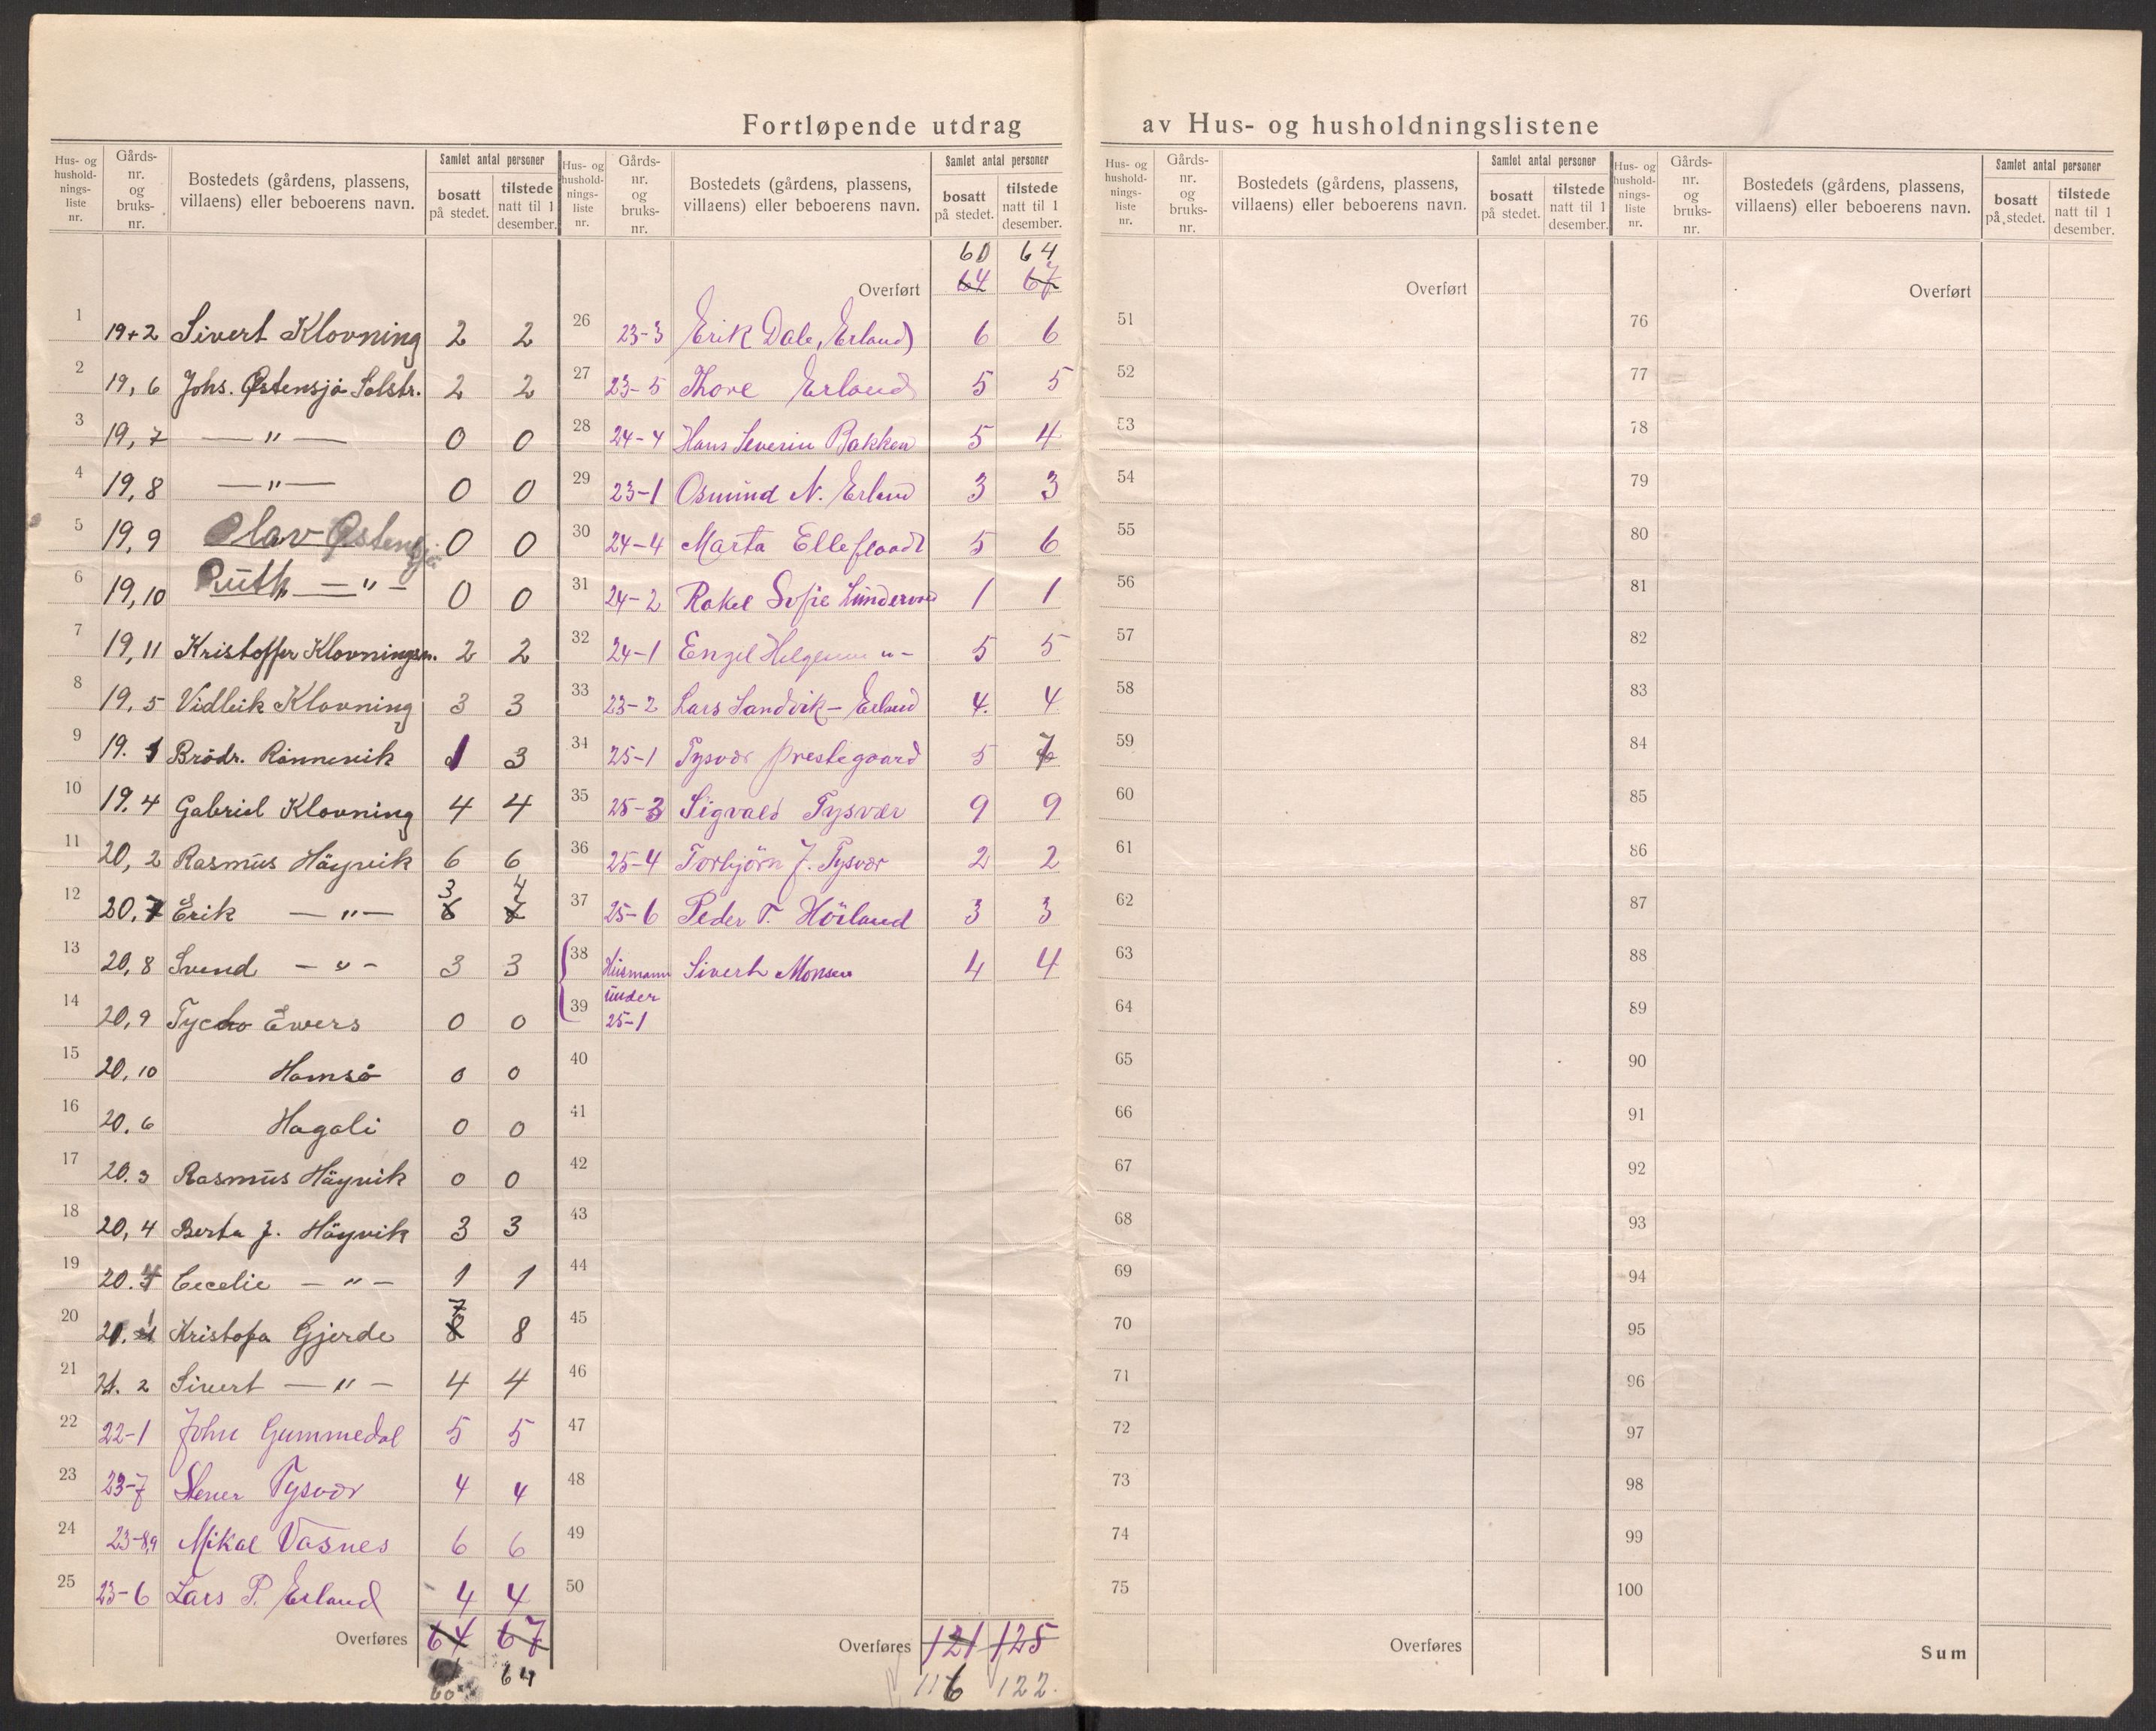 Fortløpende utdrag av Hus- og husholdningslistene
Hus- og husholdningsliste nr. Gårds- nr. og bruks- nr. Bostedets (gårdens, plassens, villaens) eller beboerens navn. Samlet antal personer bosatt på stedet. tilstede natt til 1 desember.
1 19+2 Sivert Klovning 2 2
2 19,6 Johs. Østensjø Solstr. 2 2
3 19,7 — " — 0 0
4 19,8 — " — 0 0
5 19,9 Olav Østensjø 0 0
6 19,10 Ruth — " — 0 0
7 19,11 Kristoffer Klovningsm. 2 2
8 19.5 Vidleik Klovning 3 3
9 19.1 Brødr. Rønnevik 1 3
10 19.4 Gabriel Klovning 4 4
11 20,2 Rasmus Høyvik 6 6
12 20,7 Erik — " — 3 4
13 20,8 Svend — " — 3 3
14 20,9 Tycho Ewers 0 0
15 20,10 Hamsø 0 0
16 20.6 Hagali 0 0
17 20.3 Rasmus Høyvik 0 0
18 20,4 Berta J. Høyvik 3 3
19 20. Cecelie — " — 1 1
20 21.1 Kristofa Gjerde 7 8 8
21 21.2 Sivert — " — 4 4
22 22-1 John Gummedal 5 5
23 23-7 Stener Tysvær 4 4
24 23-8,9 Mikal Vasnes 6 6
25 23-6 Lars P. Erland 4 4
Overføres 64 67
60 64
Hus- og husholdningsliste nr. Gårds- nr. og bruks- nr. Bostedets (gårdens, plassens, villaens) eller beboerens navn. Samlet antal personer bosatt på stedet. tilstede natt til 1 desember.
60 64
Overført 64 67
26 23-3 Erik Dale, Erland 6 6
27 23-5 Thore Erland 5 5
28 24-4 Hans Severin Bakken 5 4
29 23-1 Osmund N. Erland 3 3
30 24-4 Marta Elleflaadt 5 6
31 24-2 Rakel Sofie Lundervold 1 1
32 24-1 Engel Helgesen " - 5 5
33 23-2 Lars Sandvik - Erland 4. 4
34 25-1 Tysvær prestegaard 5 7
35 25-3 Sigvald Tysvær 9 9
36 25-4 Torbjørn J. Tysvær 2 2
37 25-6 Peder T. Hörland 3 3
38 Husmann Sivert Monsen 4 4
39 under 25-1
40
41
42
43
44
45
46
47
48
49
50
Overføres 121 125
116 122.
Hus- og husholdningsliste nr. Gårds- nr. og bruks- nr. Bostedets (gårdens, plassens, villaens) eller beboerens navn. Samlet antal personer bosatt på stedet. tilstede natt til 1 desember.
Overført
51
52
53
54
55
56
57
58
59
60
61
62
63
64
65
66
67
68
69
70
71
72
73
74
75
Overføres
Hus- og husholdningsliste nr. Gårds- nr. og bruks- nr. Bostedets (gårdens, plassens, villaens) eller beboerens navn. Samlet antal personer bosatt på stedet. tilstede natt til 1 desember.
Overført
76
77
78
79
80
81
82
83
84
85
86
87
88
89
90
91
92
93
94
95
96
97
98
99
100
Sum